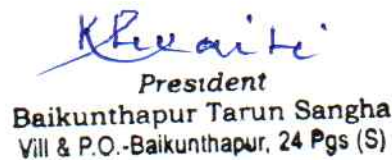 President
Baikunthapur Tarun Sangha
Vill & P.O.-Baikunthapur, 24 Pgs (S)